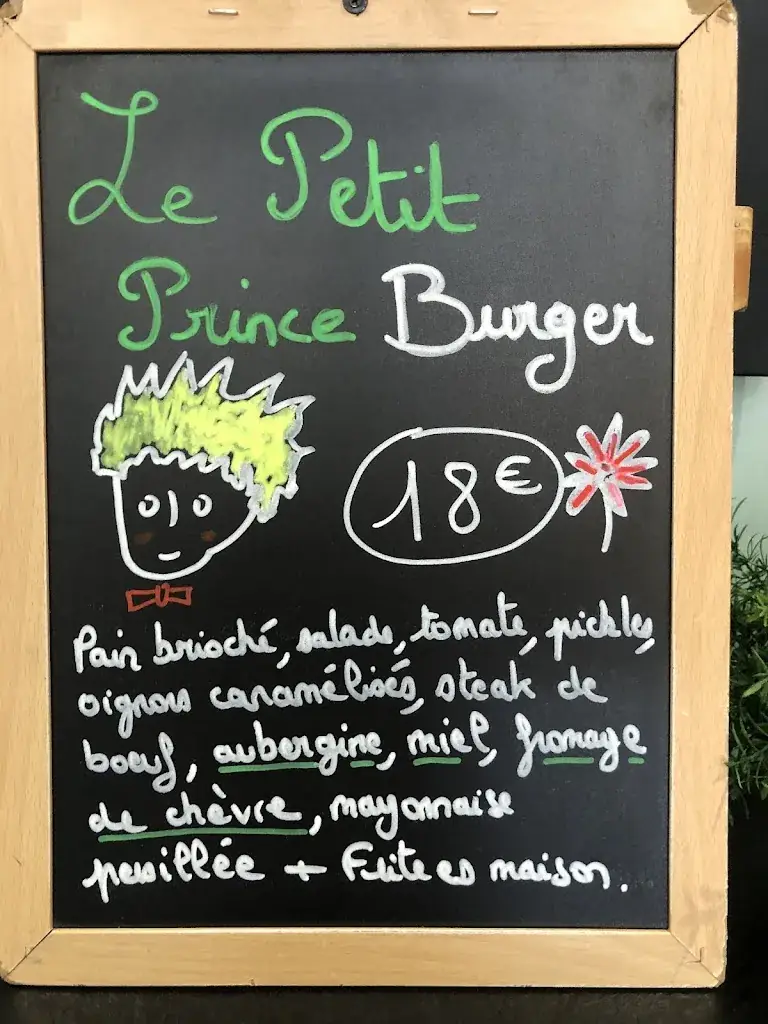 Le Petit
Prince Burger
18€
Pain brioché, salade, tomate, pickles,
oignons caramélisés, steak de
boeuf, aubergine, miel, fromage
de chèvre, mayonnaise
persillée + Frites maison.